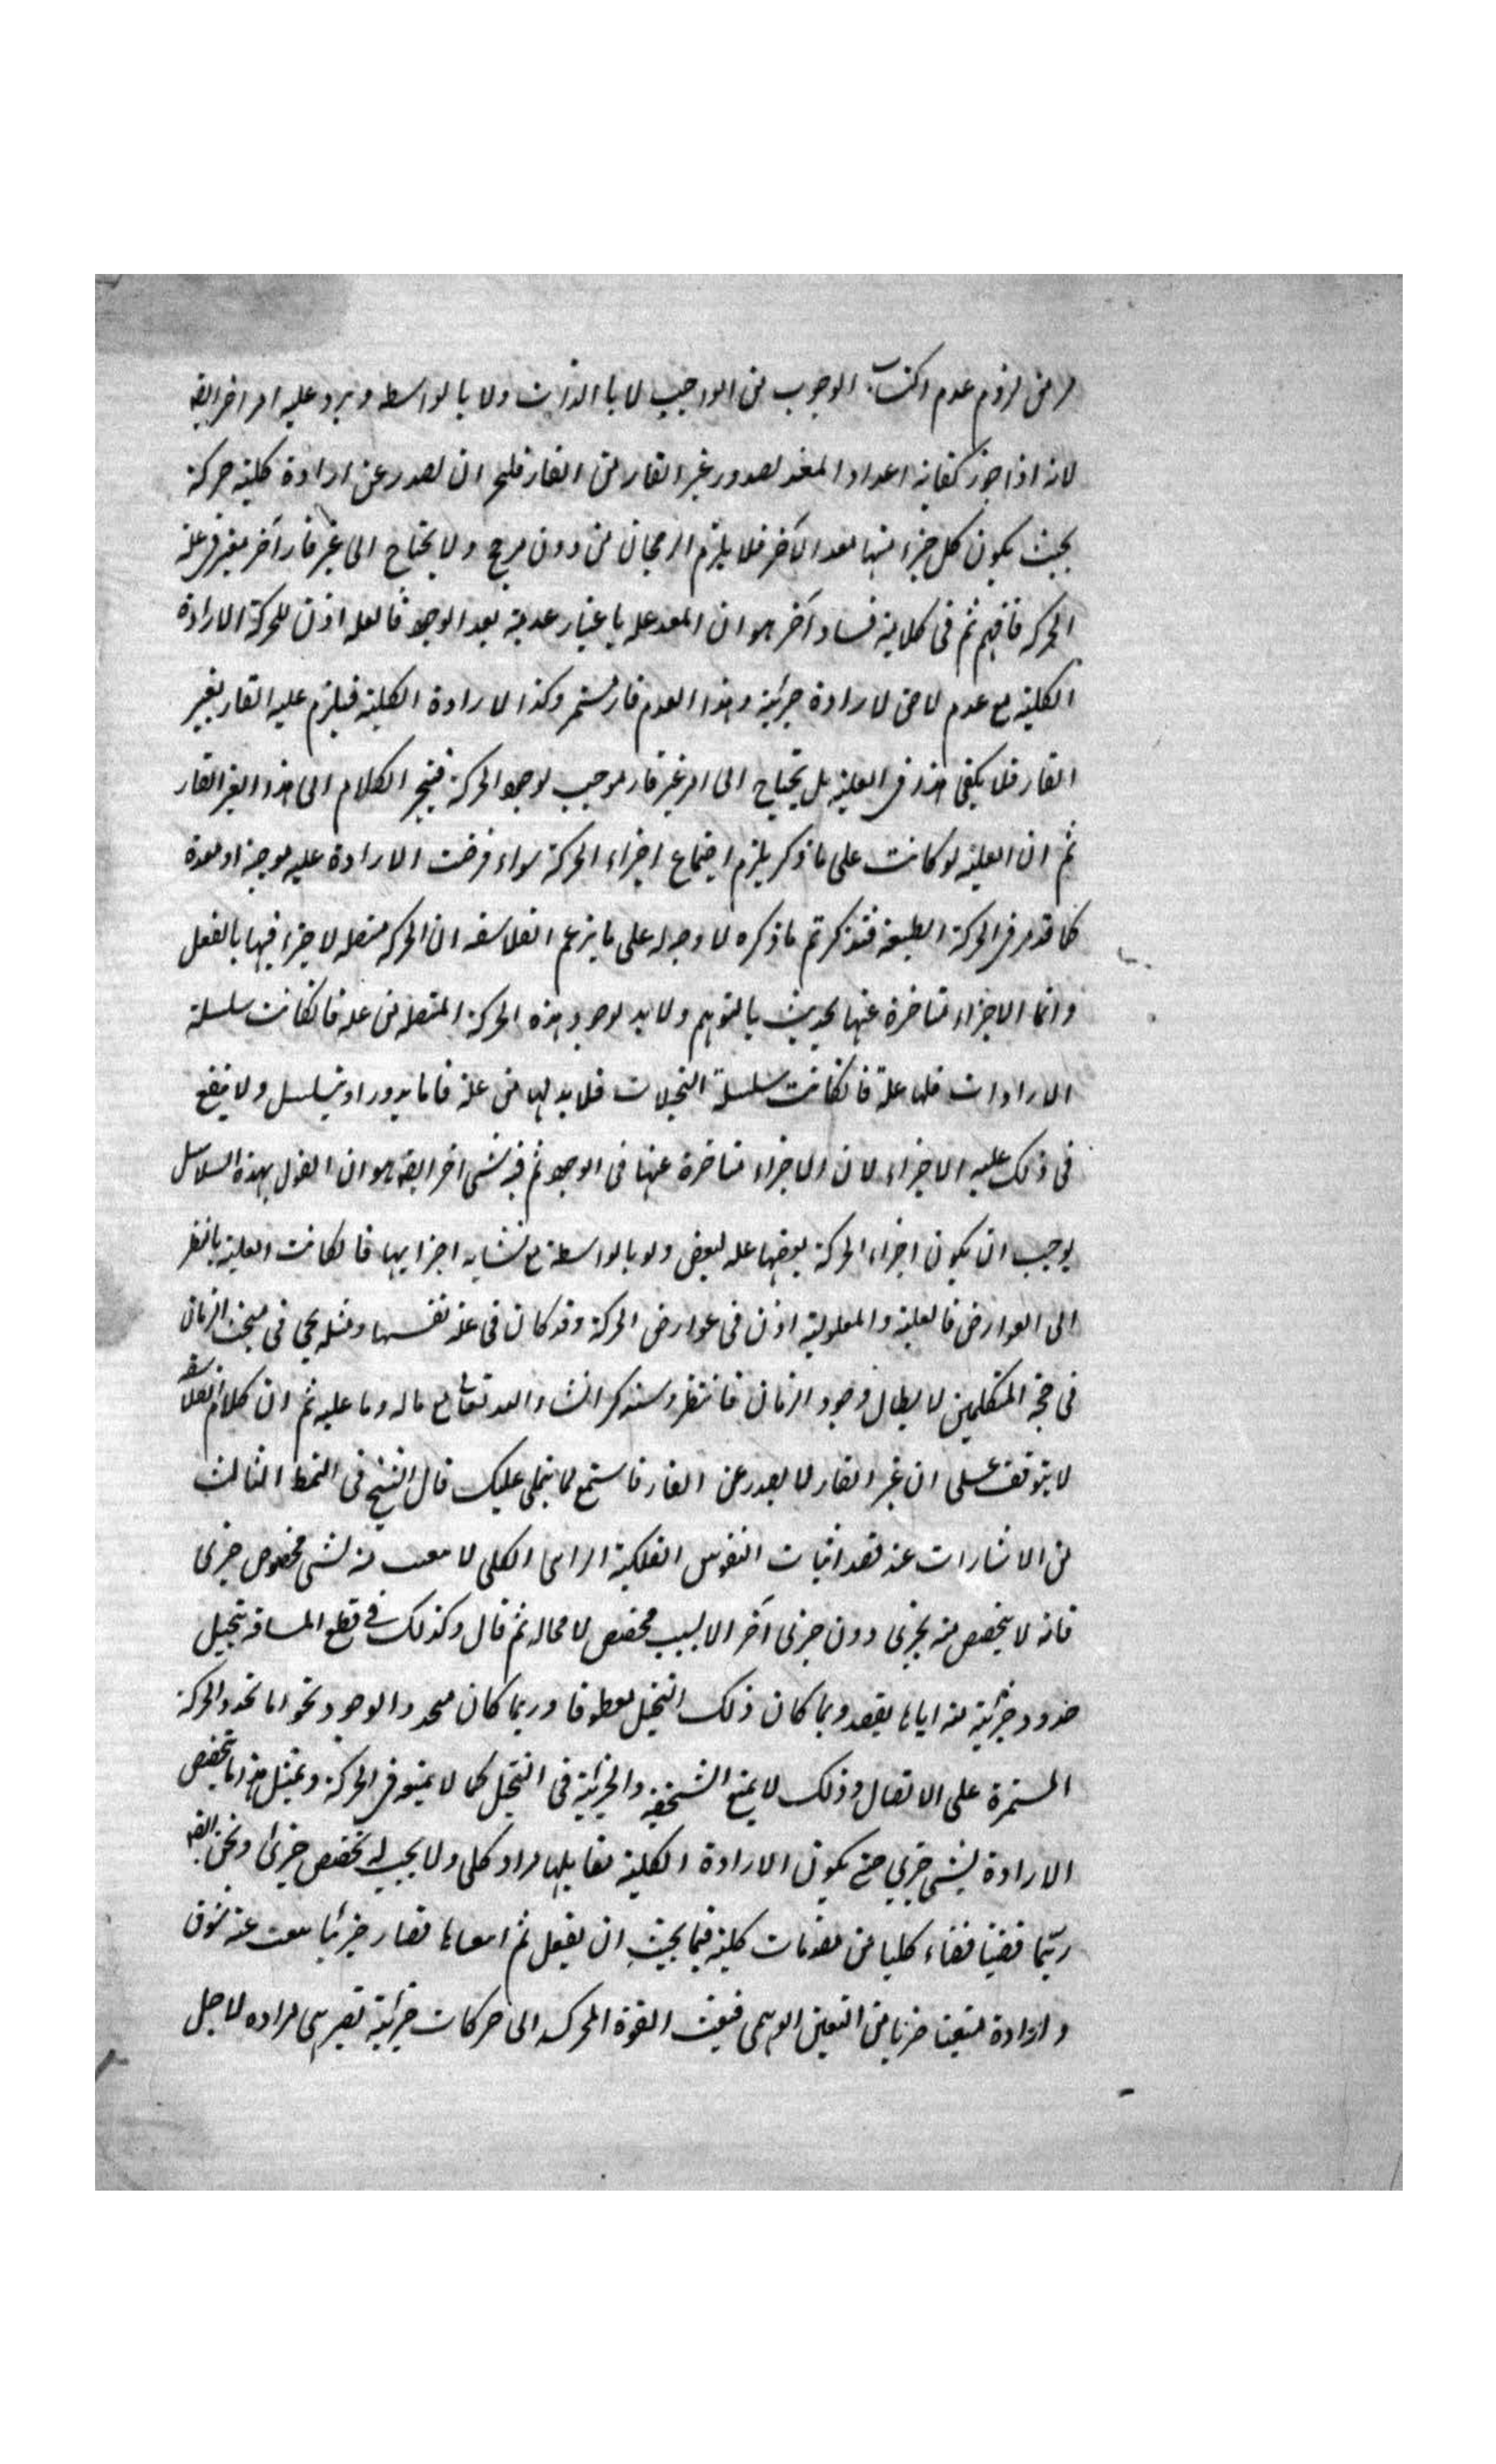 مر من لزوم عدم اكتساب الوجوب من الواجب لا بالذات ولا بالواسطه ويرد عليه امر اخر ايضه
لانه اذا جوز كفاية اعداد المعد لصدور غير القار من القار فليجز ان يصدر عن ارادة كلية حركة
بحيث يكون كل جزء منها معد الآخر فلا يلزم الرجحان من دون مرجح ولا يحتاج الى غير قار آخر
الحركه فافهم ثم فى كلامه فساد آخر هو ان المعد عله باعتبار عدميه بعد الوجود فالعله اذن للحركة الارادة
الكلية مع عدم لاحق لارادة جزئية وهذا العدم قار مستمر وكذا الارادة الكلية فيلزم علية القار لغير
القار فلا يكفى هذا فى العلية بل يحتاج الى امر غير قار موجب لوجود الحركة فينجر الكلام الى هذا الغير القار
ثم ان العلية لو كانت على ما ذكر يلزم اجتماع اجزاء الحركة سواء فرضت الارادة عليه موجبة او معدة
كما قد مر فى الحركة الطبيعية فتذكر ثم ما ذكره لا وجه له على ما يزعم الفلاسفه ان الحركه متصله لا جزء فيها بالفعل
وانما الاجزاء متاخرة عنها يحدث بالتوهم ولا بد لوجود هذه الحركة المتصله من عله فان كانت سلسلة
الارادات فلها علة فان كانت سلسلة التخيلات فلا بد لها من علة فاما يدور او يتسلسل ولا ينفع
فى ذلك علية الاجزاء لان الاجزاء متاخرة عنها فى الوجود ثم فيه شى اخر ايضه هو ان القول بهذه السلاسل
يوجب ان يكون اجزاء الحركة بعضها عله لبعض ولو بالواسطة مع تشابه اجزايها فان كانت العلية بالنظر
الى العوارض فالعلية والمعلولية اذن فى عوارض الحركة وقد كان فى علة نفسها ومثله يجى فى مبحث الزمان
فى حجة المتكلمين لابطال وجود الزمان فانتظر وسنذكر انشاء الله تعالى مع ماله وما عليه ثم ان كلام الفلاسفه
لا يتوقف على ان غير القار لا يصدر عن القار فاستمع لما يتلى عليك قال الشيخ فى النمط الثالث
من الاشارات عند قصد اثبات النفوس الفلكية الراى الكلى لا ينبعث منه شى مخصوص جزئى
فانه لا يتخصص منه بجزئى دون جزئى آخر الا بسبب مخصص لا محاله ثم قال وكذلك فى قطع المسافة يتخيل
حدود جزئية منه اياها يقصد وبما كان ذلك التخيل مقطوفا وربما كان متجدد الوجود نحو اما تجدد الحركة
المستمرة على الاتصال وذلك لا يمنع الشخصية والجزئية فى التخيل كما لا يمنع فى الحركة وبمثل هذا ما يتخصص
الارادة لشى جزئى حتى يكون الارادة الكلية مقابلها مراد كلى ولا يجب له تخصص جزئى ونحن ايضه
ربما قضينا قضاء كليا من مقدمات كلية فيما يجب ان يفعل ثم اتبعناها قضاء جزئيا ينبعث عنه شوق
وارادة متعينا ضربا من التعين الوهمى فينبعث القوة المحركه الى حركات جزئية تصير هى مراده لاجل